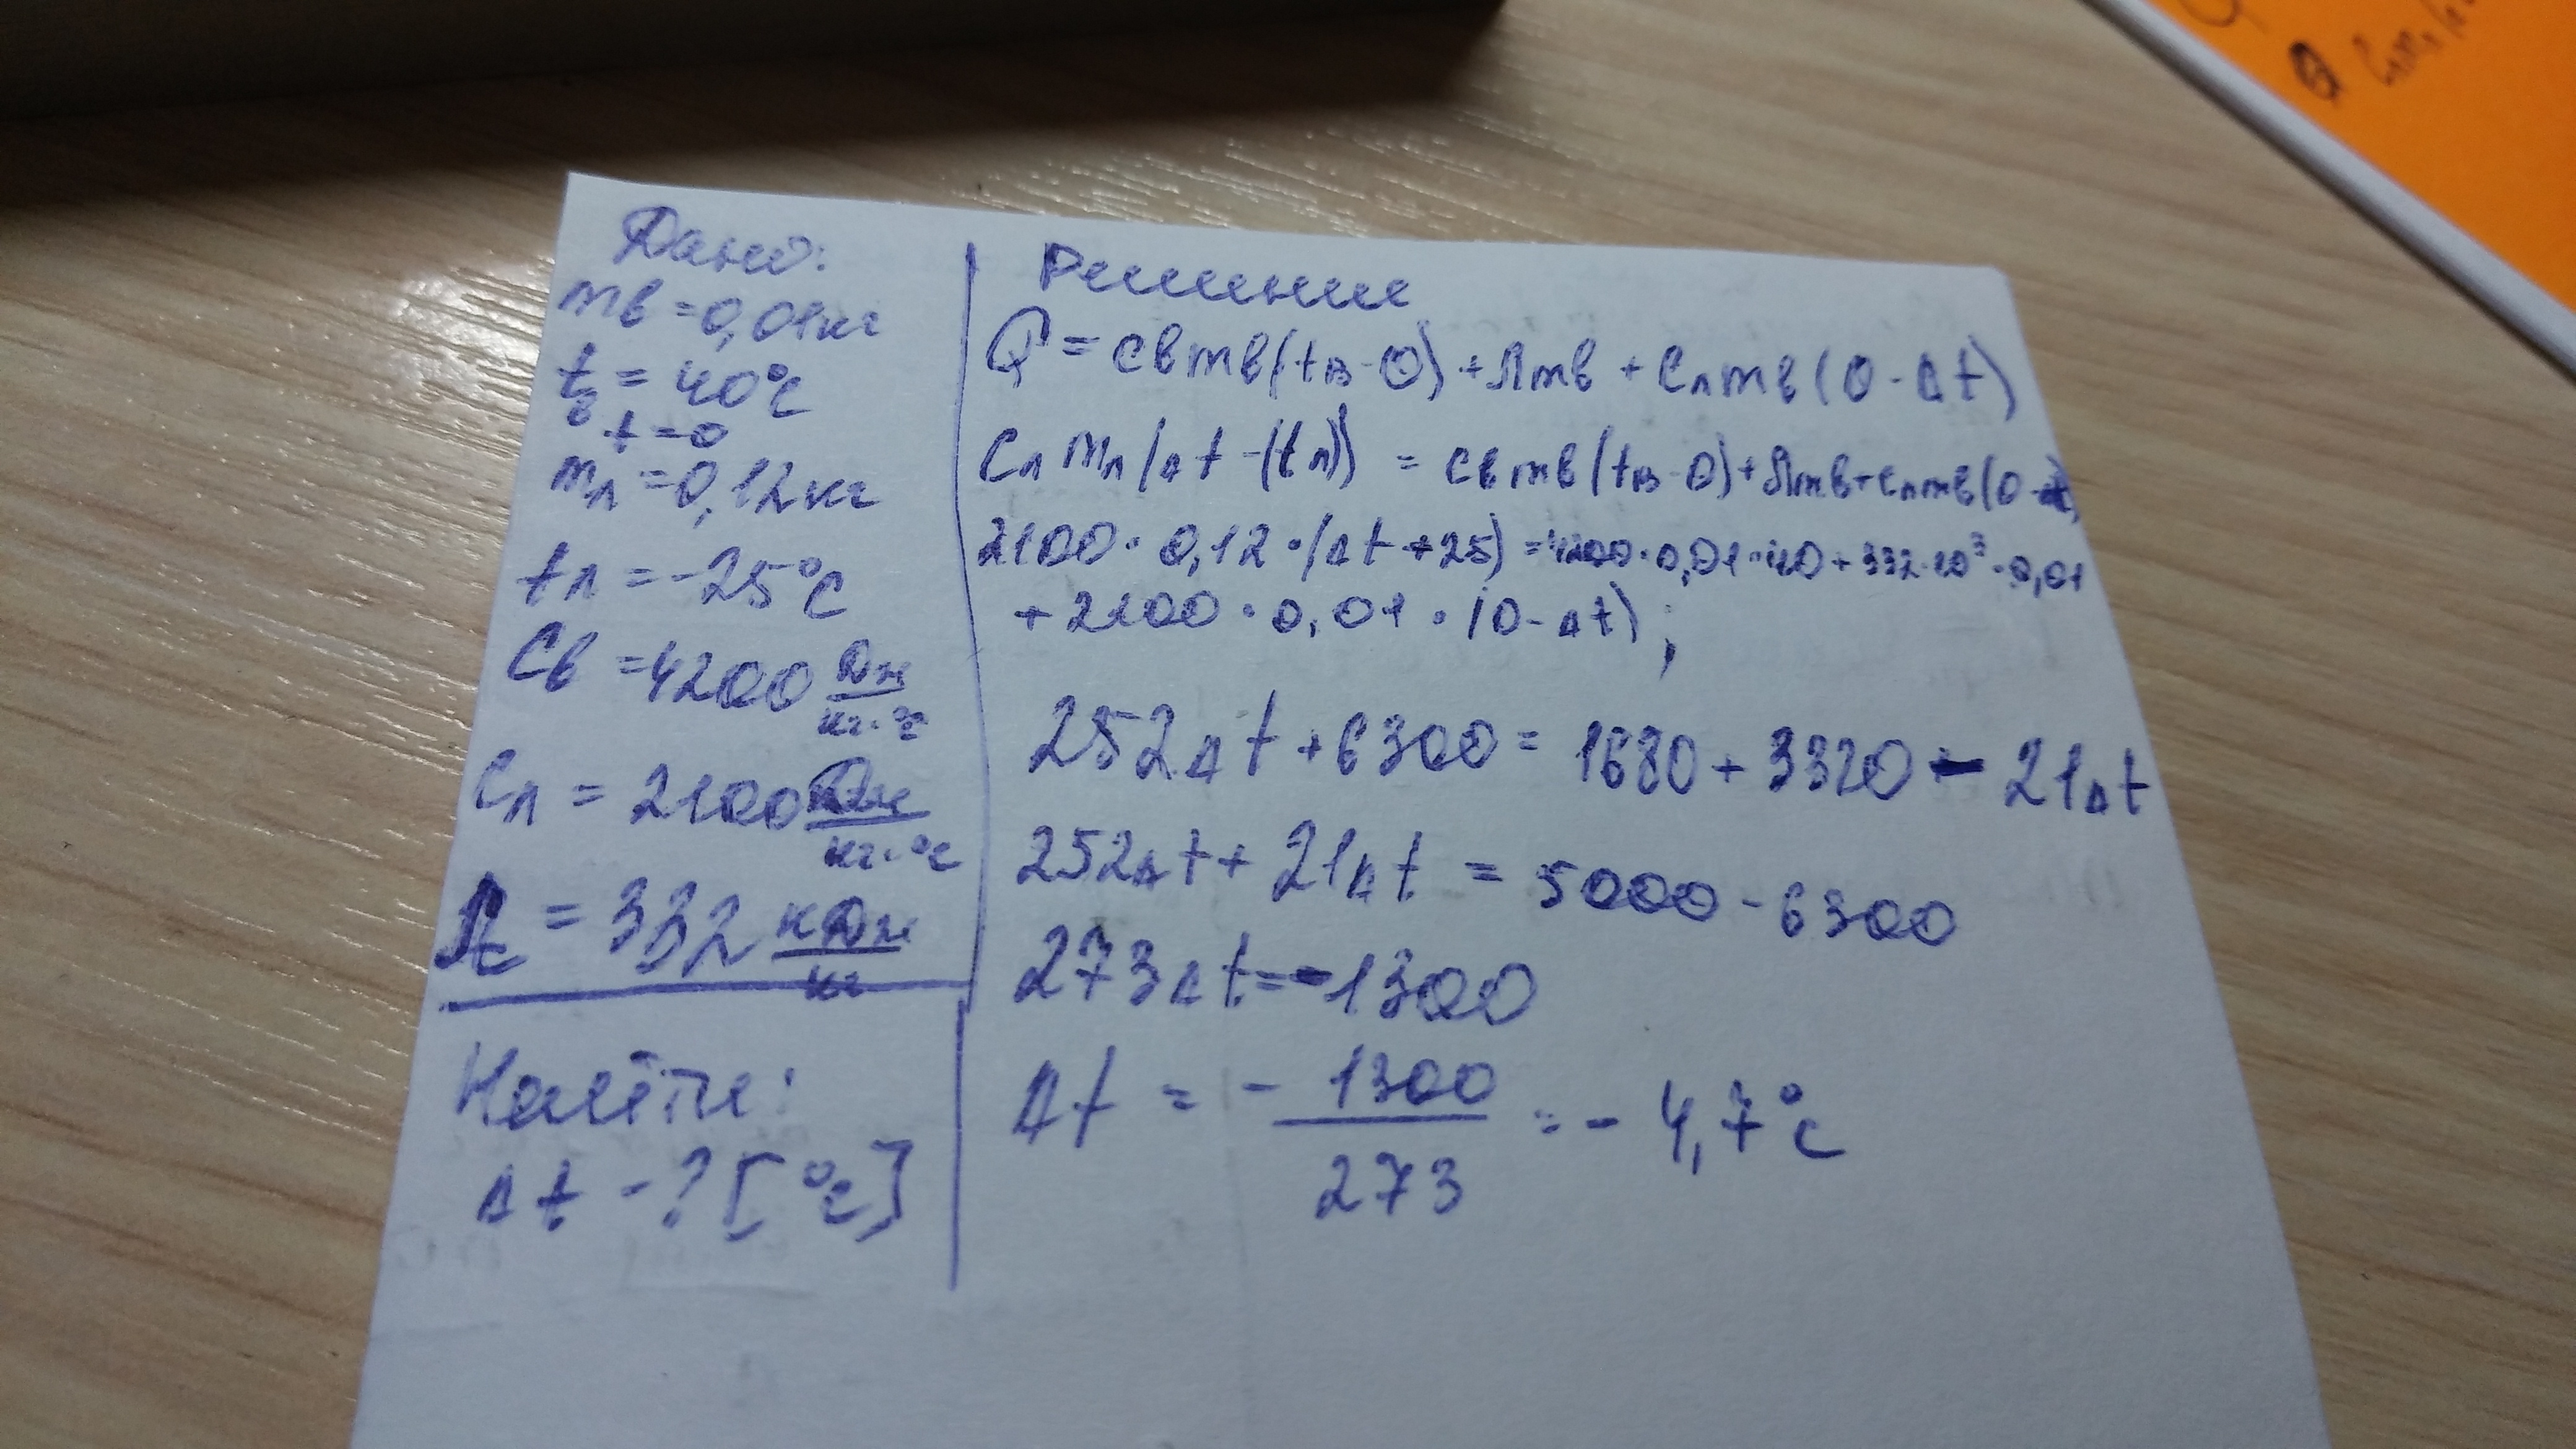 Дано:
mв = 0,01кг
tв = 40°С
t = 0
mл = 0,12кг
tл = -25°С
Cв = 4200 Дж/кг·°С
Cл = 2100 Дж/кг·°С
= 332 кДж/кг
Найти:
Δt - ? [°С]
Решение
Q = cвmв(tв-0) + λmв + Cлmв(0-Δt)
Cл mл(Δt-(tл)) = Cвmв(tв-0)+λmв+Cлmв(0-Δt)
2100·0,12·(Δt+25) = 4200·0,01·40 + 332·10³·0,01
+ 2100·0,01·(0-Δt);
252Δt + 6300 = 1680 + 3320 - 21Δt
252Δt + 21Δt = 5000 - 6300
273Δt = -1300
Δt = - 1300/273 = - 4,7°С